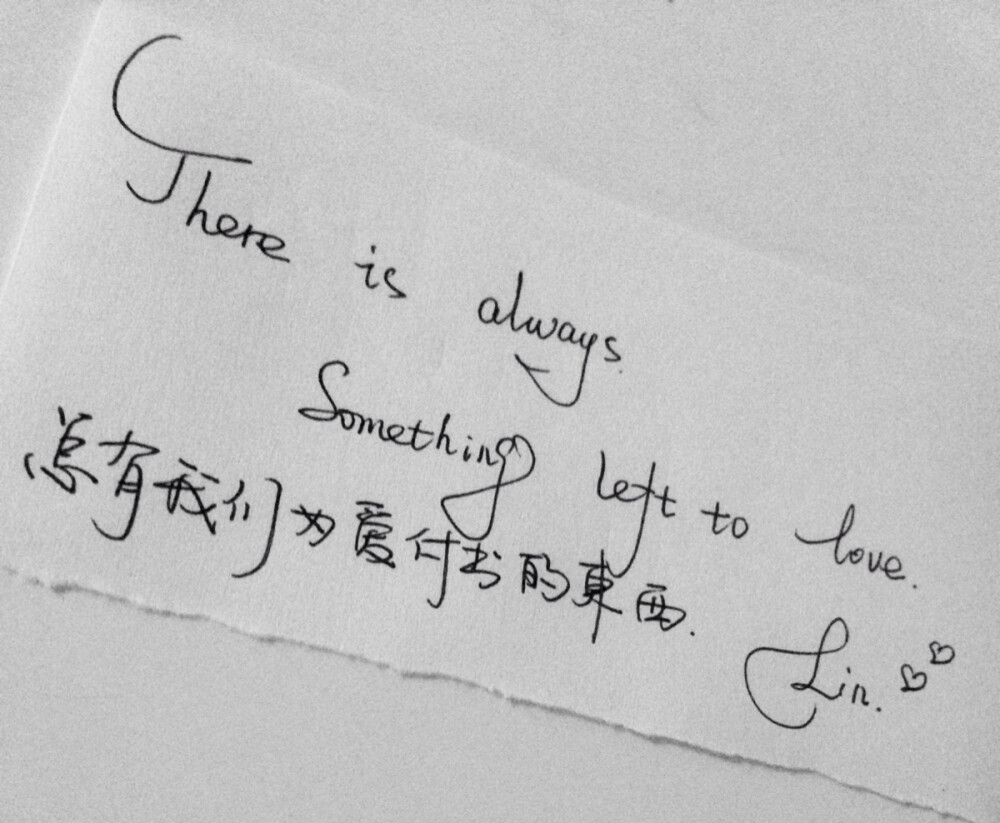 There is always
Something left to love.
总有我们为爱付出的東西.
Lin.